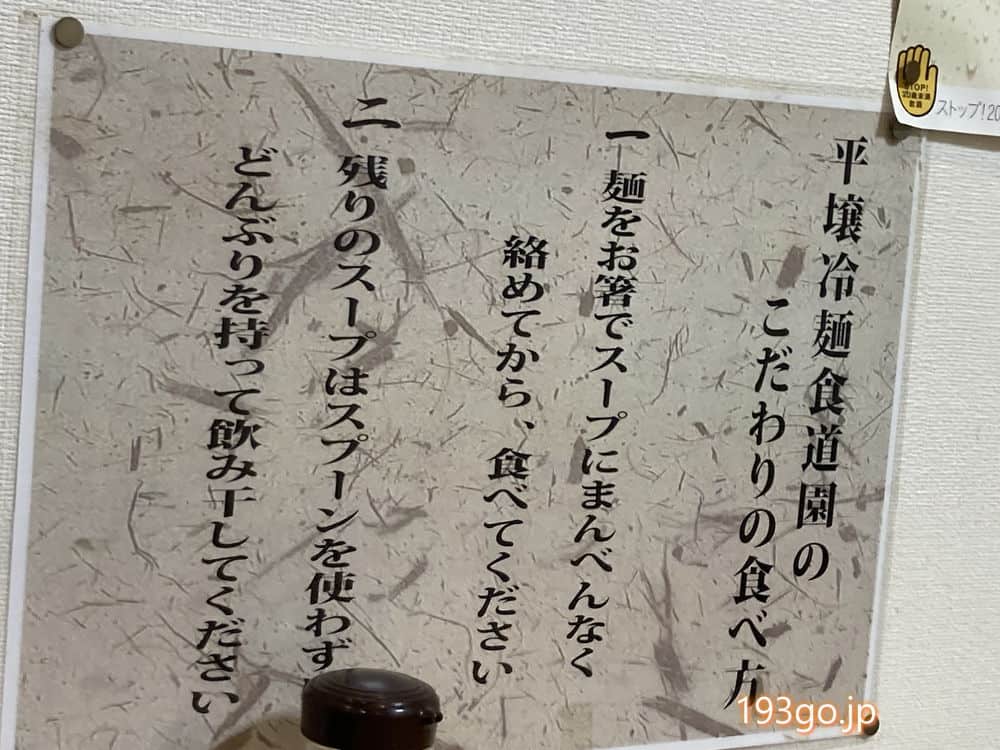 平壌冷麺食道園の
こだわりの食べ方
一 麺をお箸でスープにまんべんなく
絡めてから、食べてください
二 残りのスープはスプーンを使わず
どんぶりを持って飲み干してください
STOP!
ストップ!20
193go.jp